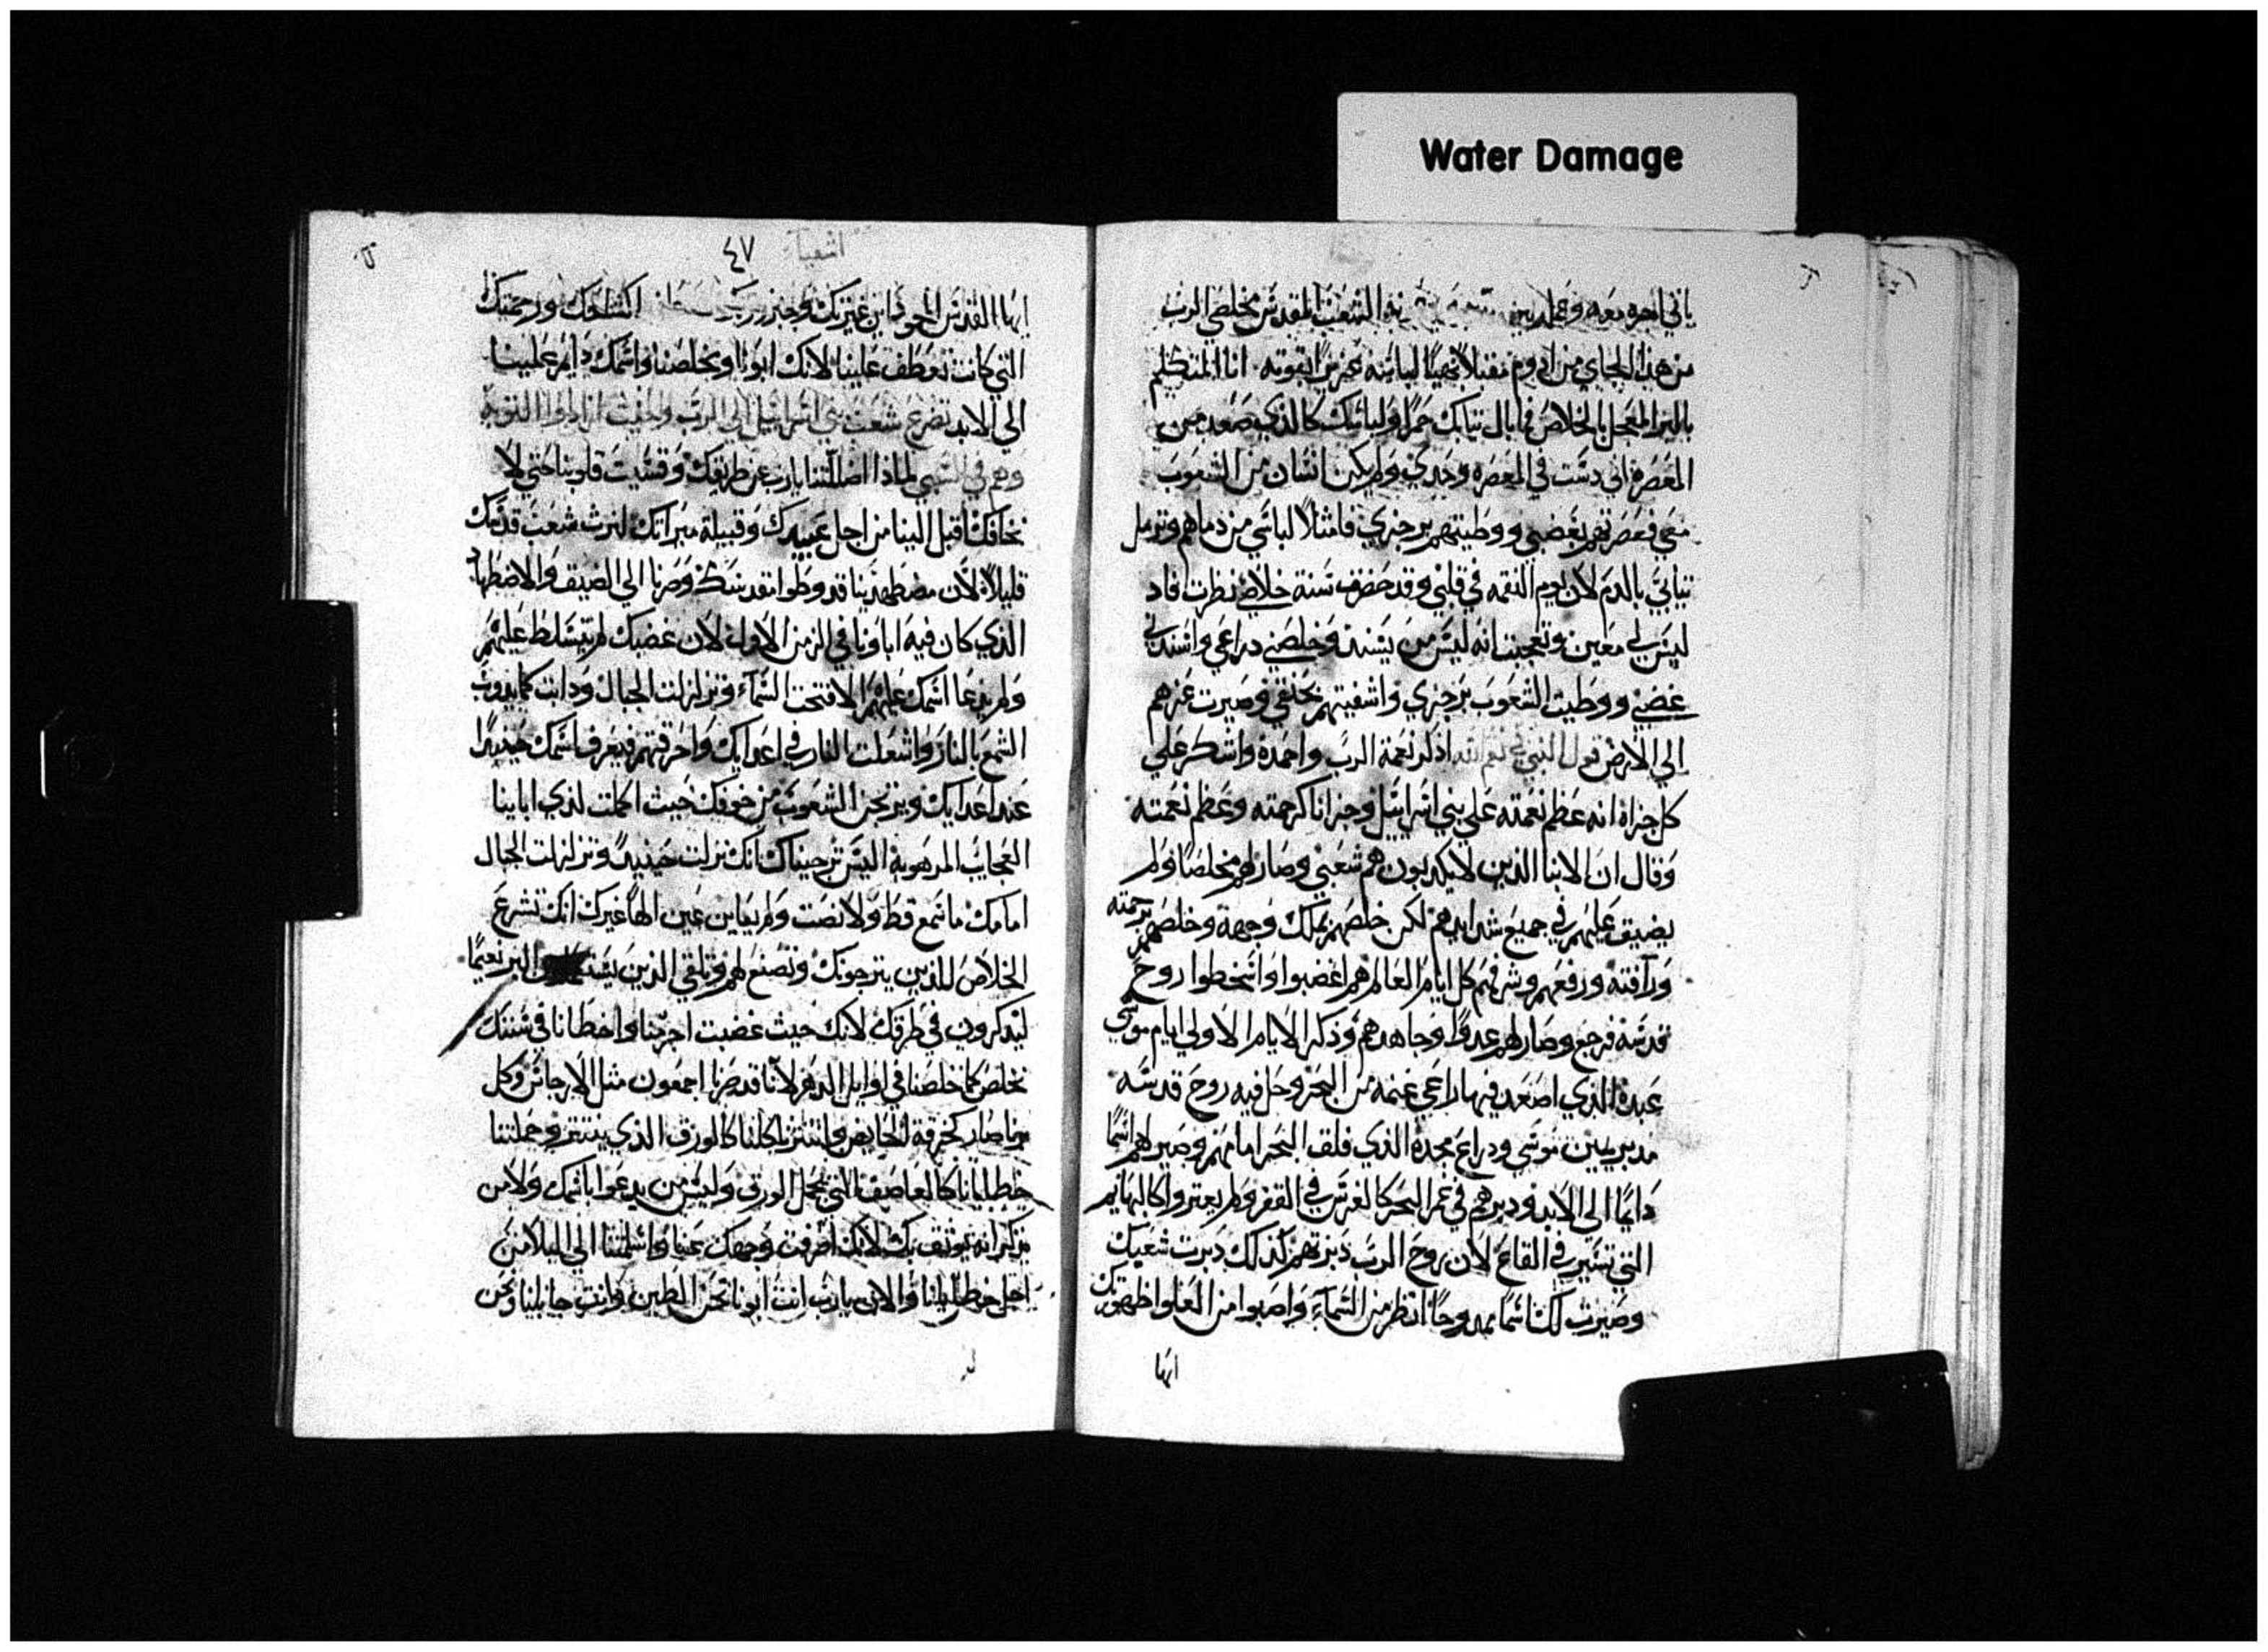 Water Damage
ياتي اجره معه وعمله بين الشعب المقدس مخلصي الرب
من هذا الجاي من ادوم مقبلا بهيا لباسه عزيزا بقوته انا المتكلم
بالبر المعجل بالخلاص فما بال تيابك حمرا ولباسك كالذي صعد من
المعصره اني دست في المعصره وحدي ولم يكن انسان من الشعوب
معي فعصرتهم بغضبي ووطيتهم برجزي فامتلا لباسي من دماهم وترمل
تيابي بالدم لان يوم النقمه في قلبي وقد حضرت سنة خلاصي نظرت فاد
ليس لي معين وتعجبت انه ليس من يسند وخلصني دراعي واسندني
غضبي ووطيت الشعوب برجزي واشفيتهم بحنقي وصيرت عزهم
الي الارض قول النبي في نعم الله اذكر نعمة الرب واحمده واشكر علي
كل جزاه انه عظم نعمته علي بني اسراييل وجزانا كرحمته وعظم نعمته
وقال ان الابنا الذين لا يكدبون هم شعبي وصار لهم مخلصا ولم
يضيق عليهم في جميع شدايدهم لكن خلصهم بملك وجهه وخلصهم برحمته
ورآفته ورفعهم وشرفهم كل ايام العالم هم اغضبوا واسخطوا روح
قدسه فرجع وصار لهم عدوا وجاهدهم وذكر الايام الاولي ايام موسي
عبده الذي اصعد فيها راعي غنمه من البحر وحل فيه روح قدسه
مدبر يمين موسي ودراع مجده الذي فلق البحر امامهم وصير لهم اسما
دايما الي الابد ودبرهم في غمر البحر كالفرس في القفر ولم يعتروا كالبهايم
التي تسير في القاع لان روح الرب دبرتهم كذلك دبرت شعبك
وصيرت لك اسما ممدوحا انظر من السماء واصبوا من العلو اظهورك
ايها
اشعياء ٤٧
ايها القدس الحق فاين غيرتك وجبروتك ورحمتك
التي كانت تعطف علينا لانك ابونا ومخلصنا واسمك دايم علينا
الي الابد تضرع شعب بني اسراييل الي الرب وحيث ارادوا التوبه
وهم في السبي لماذا اضللتنا يارب عن طريقك وقسيت قلوبنا حتي لا
نخافك اقبل الينا من اجل عبيدك وقبيلة ميراتك لنرث شعب قدسك
قليلا لان مضطهدينا قد وطوا مقدسك وصرنا الي الضيق والاضطهاد
الذي كان فيه اباونا في الزمن الاول لان غضبك لم يتسلط عليهم
ولم يدعا اسمك عليهم الا فتحت السماء وتزلزلت الجبال ودابت كما يدوب
الشمع بالنار واشعلت النار في اعدايك واحرقتهم فيعرف اسمك حينيدا
عند اعدايك ويرتجز الشعوب من خوفك حيث اكملت لذي ابابنا
العجايب المرهوبة اليس ترجيناك انك نزلت حينيدا وتزلزلت الجبال
امامك ما سمع قط ولا نصت ولم يعاين عين الها غيرك انك تشرع
الخلاص للذين يترجونك وتصنع لهم وتلقي الذين البر نعيما
ليدكرون في طرقك لانك حيث غضبت اجرمنا واخطانا في سننك
نخلص كما خلصنا في اوايل الدهر لانا قد صرنا اجمعون مثل الارجاس وكل
منا صار كخرقة الحايض وانتترنا كلنا كالورق الذي ينتتر وحملتنا
خطايانا كالعاصف التي تحمل الورق وليس من يدعوا باسمك ولا من
يدكر انه يوتق بك لانك اصرفت وجهك عنا واسلمتنا الي البلا من
اجل خطايانا والان يارب انت ابونا نحن الطين وانت جابلنا ونحن